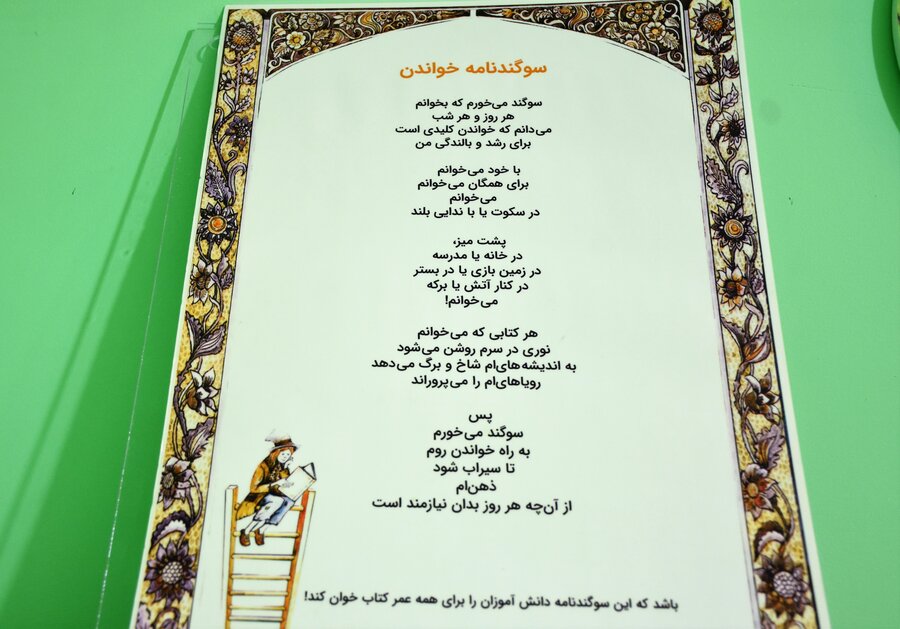 سوگندنامه خواندن
سوگند می‌خورم که بخوانم
هر روز و هر شب
می‌دانم که خواندن کلیدی است
برای رشد و بالندگی من
با خود می‌خوانم
برای همگان می‌خوانم
می‌خوانم
در سکوت یا با ندایی بلند
پشت میز،
در خانه یا مدرسه
در زمین بازی یا در بستر
در کنار آتش یا برکه
می‌خوانم!
هر کتابی که می‌خوانم
نوری در سرم روشن می‌شود
به اندیشه‌های‌ام شاخ و برگ می‌دهد
رویاهای‌ام را می‌پروراند
پس
سوگند می‌خورم
به راه خواندن روم
تا سیراب شود
ذهن‌ام
از آن‌چه هر روز بدان نیازمند است
باشد که این سوگندنامه دانش آموزان را برای همه عمر کتاب خوان کند!